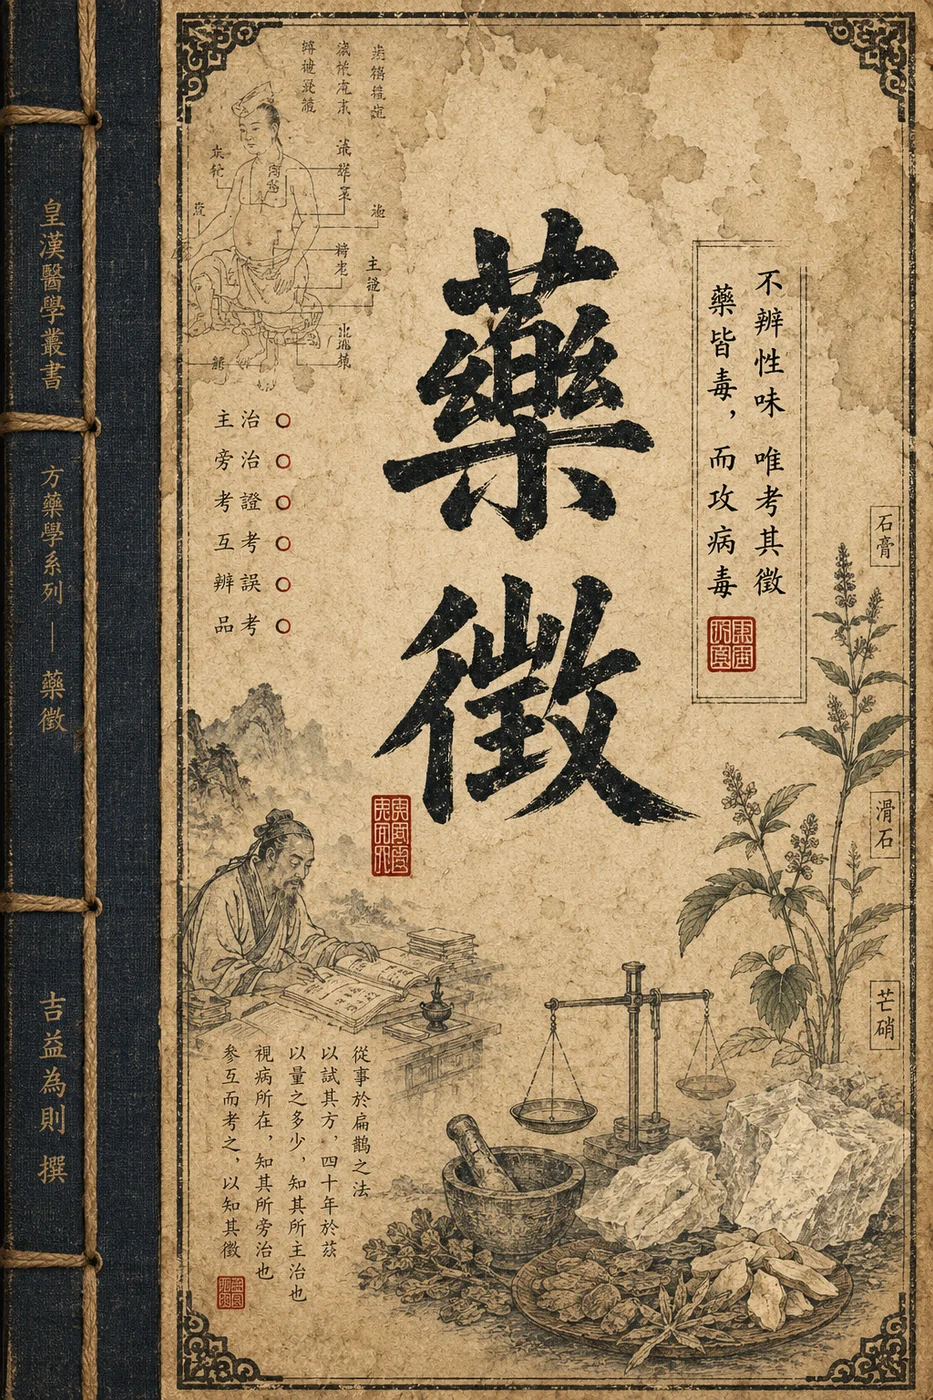 皇漢醫學叢書
方藥學系列 — 藥徵
吉益為則 撰
藥徵
不辨性味 唯考其徵
藥皆毒，而攻病毒
主治
旁治
考證
互考
辨誤
品考
石膏
滑石
芒硝
從事於扁鵲之法
以試其方，四十年於茲
以量之多少，知其所主治也
視病所在，知其所旁治也
參互而考之，以知其徵